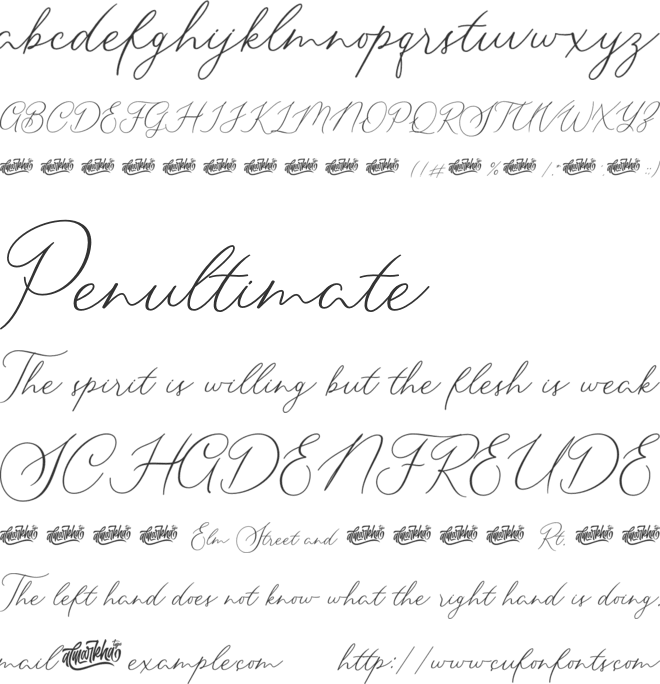 abcdefghijklmnopqrstuvwxyz
ABCDEFGHIJKLMNOPQRSTUVWXYZ
( ( # % / . " : : : )
Penultimate
The spirit is willing but the flesh is weak
SCHADENFREUDE
Elm Street and Rt.
The left hand does not know what the right hand is doing.
mail example.com http://www.cufonfonts.com